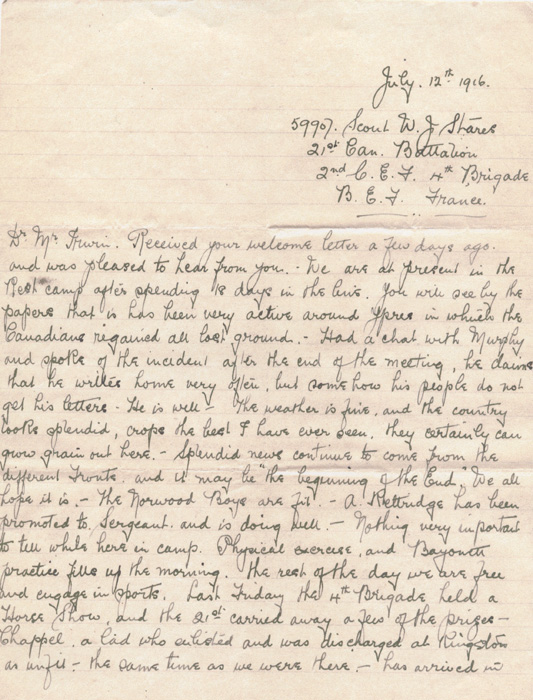 July. 12th 1916.
59907. Scout W. J Stares
21st Can. Battalion
2nd C. E. F. 4th Brigade
B. E. F. France.
Dr Mr Irwin. Received your welcome letter a few days ago.
and was pleased to hear from you. - We are at present in the
Rest camp after spending 18 days in the line. You will see by the
papers that is has been very active around Ypres in which the
Canadians regained all lost ground. - Had a chat with Murphy
and spoke of the incident after the end of the meeting, he claims
that he writes home very often, but somehow his people do not
get his letters - He is well - The weather is fine, and the country
looks splendid, crops the best I have ever seen, they certainly can
grow grain out here. - Splendid news continue to come from the
different Fronts. and it may be "the beginning of the End," We all
hope it is. - The Norwood Boys are fit. - A Kettridge has been
promoted to Sergeant. and is doing well. - Nothing very important
to tell while here in camp. Physical exercise, and Bayonett
practice fills up the morning. The rest of the day we are free
and engage in sports. Last Friday the 4th Brigade held a
Horse Show, and the 21st carried away a few of the prizes -
Chappel, a lad who enlisted and was discharged at Kingston
as unfit - the same time as we were there. - has arrived in